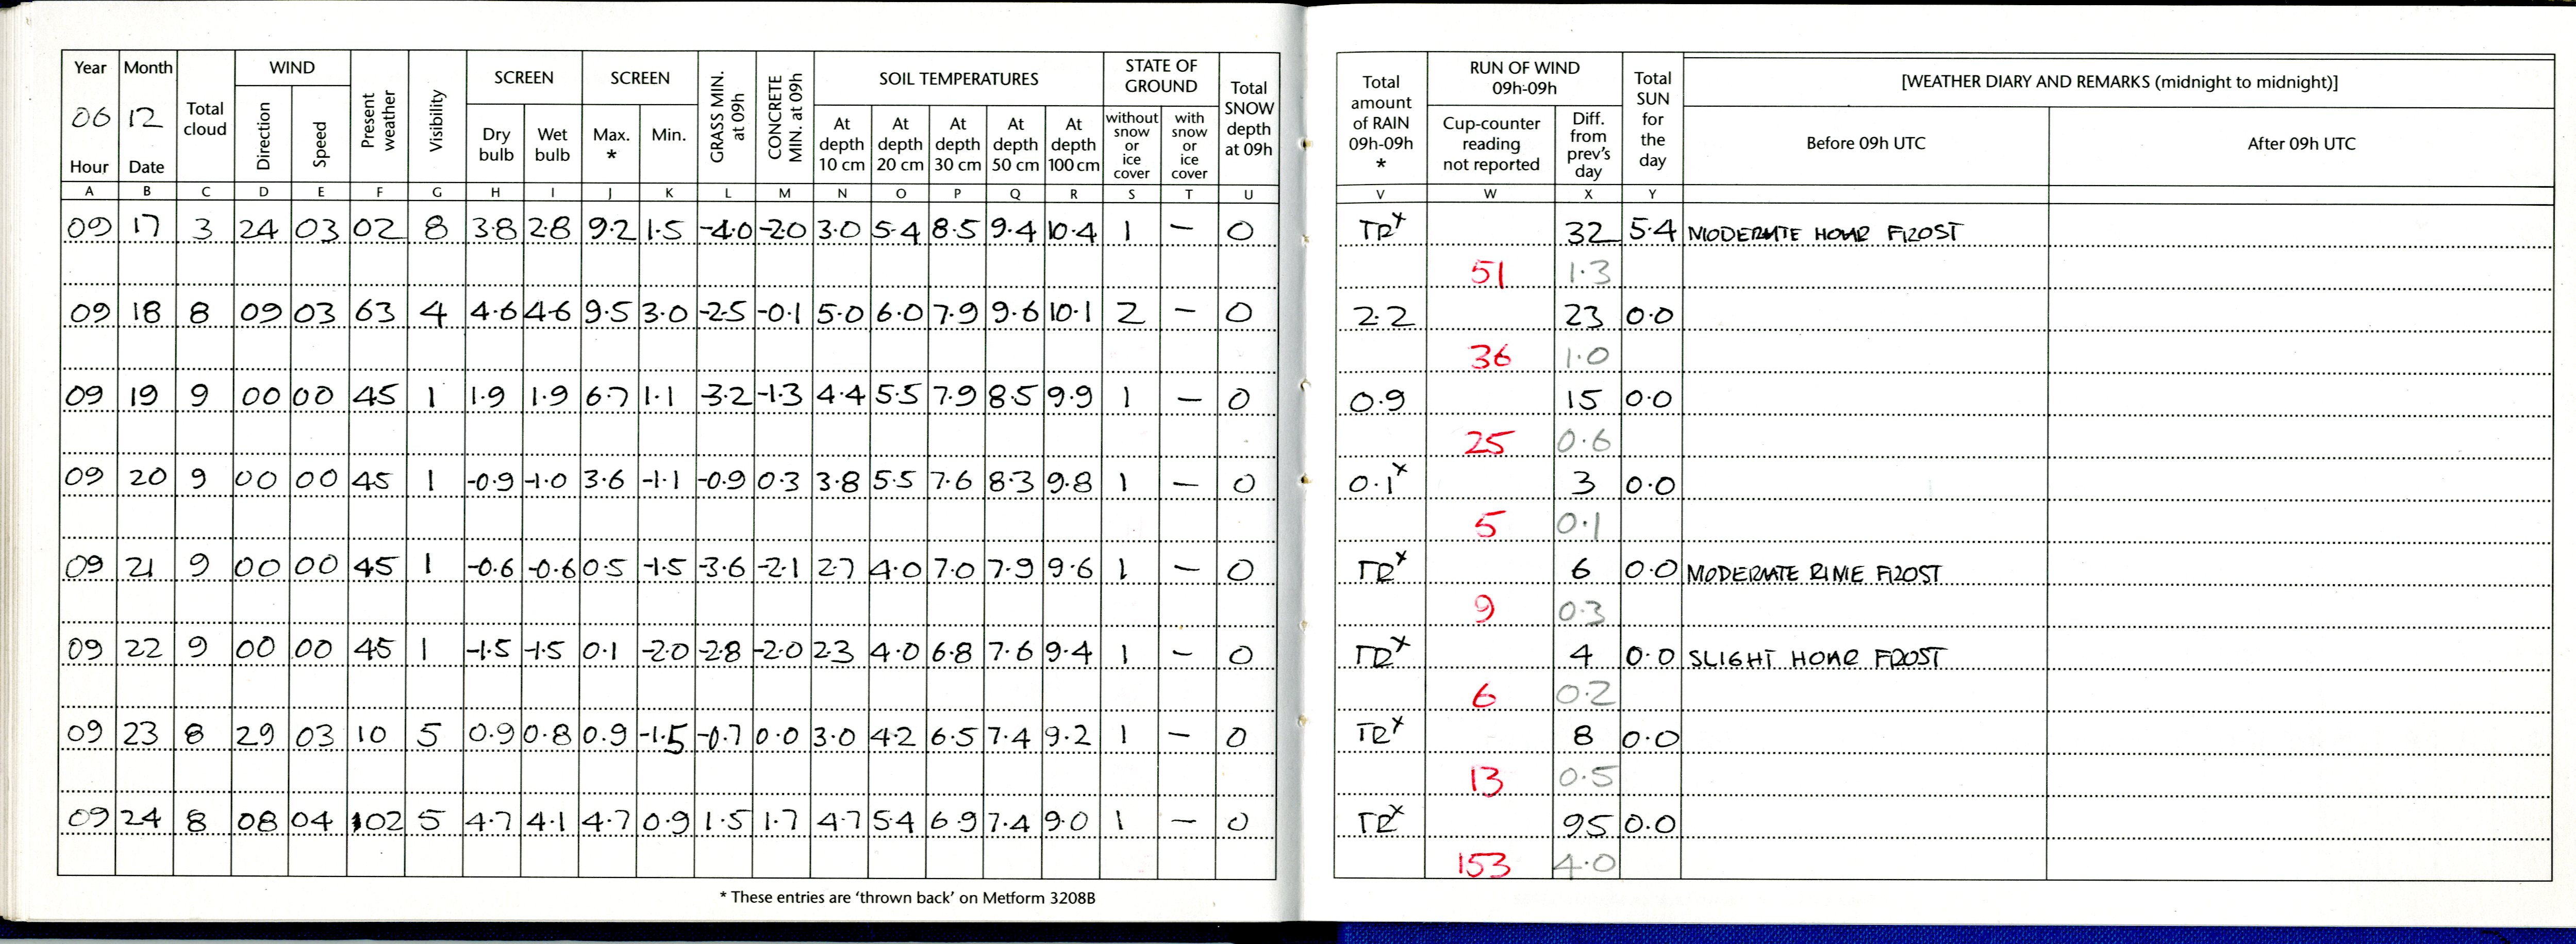 Year Month Total cloud WIND Present weather Visibility SCREEN SCREEN GRASS MIN. at 09h CONCRETE MIN. at 09h SOIL TEMPERATURES STATE OF GROUND Total SNOW depth at 09h
06 12 Direction Speed Dry bulb Wet bulb Max. * Min. At depth 10 cm At depth 20 cm At depth 30 cm At depth 50 cm At depth 100 cm without snow or ice cover with snow or ice cover
Hour Date
A B C D E F G H I J K L M N O P Q R S T U
09 17 3 24 03 02 8 3.8 2.8 9.2 1.5 -4.0 -2.0 3.0 5.4 8.5 9.4 10.4 1 — 0
09 18 8 09 03 63 4 4.6 4.6 9.5 3.0 -2.5 -0.1 5.0 6.0 7.9 9.6 10.1 2 — 0
09 19 9 00 00 45 1 1.9 1.9 6.7 1.1 -3.2 -1.3 4.4 5.5 7.9 8.5 9.9 1 — 0
09 20 9 00 00 45 1 -0.9 -1.0 3.6 -1.1 -0.9 0.3 3.8 5.5 7.6 8.3 9.8 1 — 0
09 21 9 00 00 45 1 -0.6 -0.6 0.5 -1.5 -3.6 -2.1 2.7 4.0 7.0 7.9 9.6 1 — 0
09 22 9 00 00 45 1 -1.5 -1.5 0.1 -2.0 -2.8 -2.0 2.3 4.0 6.8 7.6 9.4 1 — 0
09 23 8 29 03 10 5 0.9 0.8 0.9 -1.5 -0.7 0.0 3.0 4.2 6.5 7.4 9.2 1 — 0
09 24 8 08 04 02 5 4.7 4.1 4.7 0.9 1.5 1.7 4.7 5.4 6.9 7.4 9.0 1 — 0
* These entries are ‘thrown back’ on Metform 3208B
Total amount of RAIN 09h-09h * RUN OF WIND 09h-09h Total SUN for the day [WEATHER DIARY AND REMARKS (midnight to midnight)]
Cup-counter reading not reported Diff. from prev’s day Before 09h UTC After 09h UTC
V W X Y
TRx 32 5.4 MODERATE HOAR FROST
51 1.3
2.2 23 0.0
36 1.0
0.9 15 0.0
25 0.6
0.1x 3 0.0
5 0.1
TRx 6 0.0 MODERATE RIME FROST
9 0.3
TRx 4 0.0 SLIGHT HOAR FROST
6 0.2
TRx 8 0.0
13 0.5
TRx 95 0.0
153 4.0